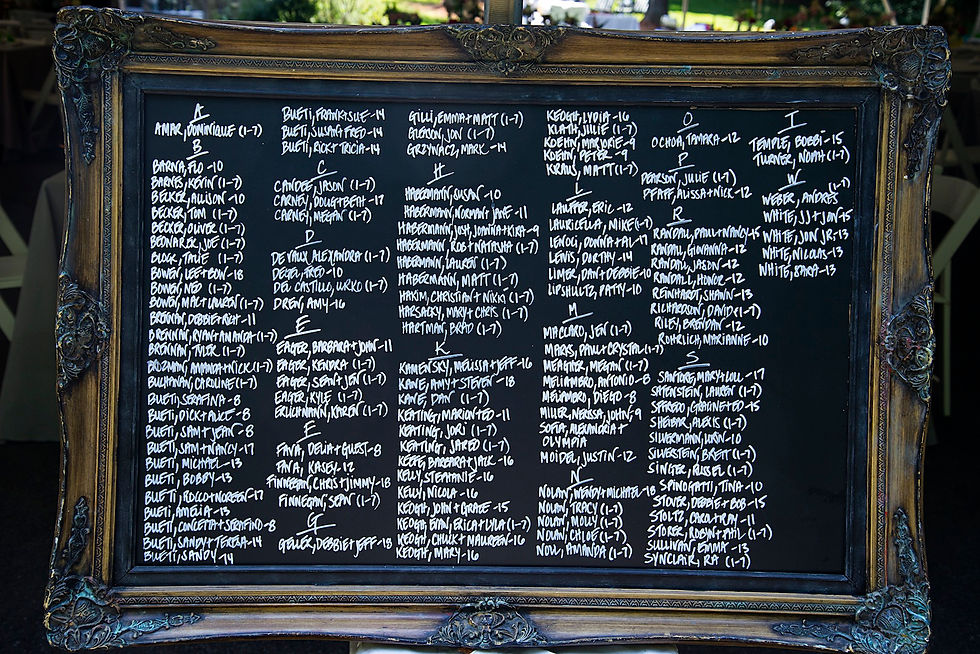 A
AMAR, DOMINIQUE (1-7)
B
BARNA, FLO -10
BARNES, KEVIN (1-7)
BECKER, ALLISON -10
BECKER, TOM (1-7)
BECKER, OLIVER (1-7)
BEDNAREK, JOE (1-7)
BLOCK, TALIE (1-7)
BOWEN, LEE+BON -18
BOWEN, NED (1-7)
BOWEN, MAC+LAUREN (1-7)
BRENNAN, DEBBIE+RICH -11
BRENNAN, RYAN+AMANDA (1-7)
BRENNAN, TYLER (1-7)
BROZMAN, AMANDA+NICK (1-7)
BUCHANAN, CAROLINE (1-7)
BUETI, SERAFINA -8
BUETI, DICK+ALICE -8
BUETI, SAM+JEAN -8
BUETI, SAM+NANCY -17
BUETI, MICHAEL -13
BUETI, BOBBY -13
BUETI, ROCCO+NOREEN -17
BUETI, AMELIA -13
BUETI, CONCETTA+SERAFINO -8
BUETI, SANDY+TERESA -14
BUETI, SANDY -14
BUETI, FRANK+SUE -14
BUETI, SUSAN+FRED -14
BUETI, RICK+TRICIA -14
C
CANDEE, JASON (1-7)
CARNEY, DOUG+BETH -17
CARNEY, MEGAN (1-7)
D
DEVAUX, ALEXANDRA (1-7)
DEZEL, FRED -10
DEL CASTILLO, URKO (1-7)
DREN, AMY -16
E
EAGER, BARBARA+JOHN -11
EAGER, KENDRA (1-7)
EAGER, SEAN+JEN (1-7)
EAGER, KYLE (1-7)
ERLICHMANN, KAREN (1-7)
F
FAVA, DELIA+GUEST -8
FAVA, KASEY -12
FINNEGAN, CHRIS+JIMMY -18
FINNEGAN, SEAN (1-7)
G
GELLER, DEBBIE+JEFF -18
GILLI, EMMA+MATT (1-7)
GLEASON, JON (1-7)
GRZYNACZ, MARK -14
H
HABERMANN, SUSAN -10
HABERMANN, NORMAN+JANE -11
HABERMANN, JOSH, JOANNA+KIRA -9
HABERMANN, ROB+NATASHA (1-7)
HABERMANN, LAUREN (1-7)
HABERMANN, MATT (1-7)
HAKIM, CHRISTIAN+NIKKI (1-7)
HARSACKY, MARY+GRANT (1-7)
HARTMAN, BRAD (1-7)
K
KAMENSKY, MELISSA+JEFF -16
KANE, AMY+STEVEN -18
KANE, DAN (1-7)
KEATING, MARION+ED -11
KEATING, JORI (1-7)
KEATING, JARED (1-7)
KEEFE, BARBARA+JACK -16
KELLY, STEPHANIE -16
KELLY, NICOLA -16
KEOGH, JOHN+GRACE -15
KEOGH, EVAN, ERICA+LYLA (1-7)
KEOGH, CHUCK+MAUREEN -16
KEOGH, MARY -16
KEOGH, LYDIA -16
KLATH, JULIE (1-7)
KOEHN, MARJORIE -9
KOEHN, PETER -9
KRAUS, MATT (1-7)
L
LAUFFER, ERIC -12
LAURICELLA, MIKE (1-7)
LENOCI, DONNA+AL -17
LEWIS, DORTHY -14
LIMER, DAN+DEBBIE -10
LIPSHULTZ, PATTY -10
M
MACLARD, JEN (1-7)
MARKS, PAUL+CRYSTAL (1-7)
MEAGHER, MEGAN (1-7)
MELIAMBRO, ANTONIO -8
MELIAMBRO, DIEGO -8
MILLER, NERISSA, JOHN, -9
SOFIA, ALEXANDRIA+
OLYMPIA
MOIDEL, JUSTIN -12
N
NOLAN, WENDY+MICHAEL -18
NOLAN, TRACY (1-7)
NOLAN, MOLLY (1-7)
NOLAN, CHLOE (1-7)
NOW, AMANDA (1-7)
O
OCHOA, TAMARA -12
P
PEARSON, JULIE (1-7)
PFAFF, ALISSA+NICK -12
R
RANDALL, PAUL+NANCY -15
RANDALL, GIOVANNA -12
RANDALL, JASON -12
RANDALL, HONOR -12
REINHARDT, SHAWN -13
RICHARDSON, DAVID (1-7)
RILEY, BRENDAN -12
ROHRLICH, MARIANNE -10
S
SANTORE, MARY+LOU -17
SATENSTEIN, LAUREN (1-7)
SFREDO, GRAGINE+ED -15
SHEIBAR, ALEXIS (1-7)
SILVERMANN, LORN -10
SILVERSTEIN, BRETT (1-7)
SINGER, RUSSEL (1-7)
SPINOGATTI, TINA -10
STOVER, DEBBIE+BOB -15
STOLTZ, CAROL+RAY -11
STORER, ROBYN+PHIL (1-7)
SULLIVAN, EMMA -13
SYNCLAIR, RA (1-7)
T
TEMPLE, BOBBI -15
TURNER, NOAH (1-7)
W
WEBER, ANDRES (1-7)
WHITE, JJ+JON -15
WHITE, JON JR -13
WHITE, NICOLAS -13
WHITE, SARA -13